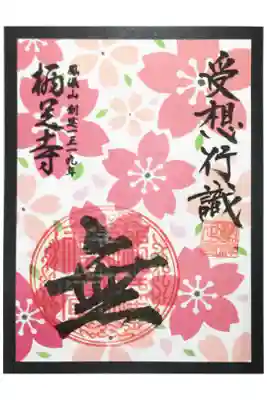 受想行識
無
鳳儀山 創基一五一九年
栖足寺